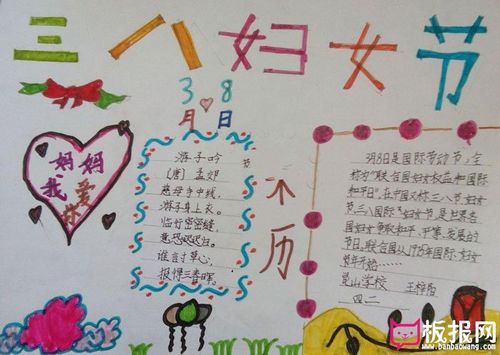 三八妇女节
3月8日
妈妈
我爱你
游子吟
(唐) 孟郊
慈母手中线,
游子身上衣。
临行密密缝,
意恐迟迟归。
谁言寸草心,
报得三春晖。
节
来历
3月8日是国际劳动节,全
称为"联合国妇女权益和国际
和平日"。在中国又称三八节、妇女
节、三八国际妇女节是世界各
国妇女争取和平、平等、发展的
节日。联合国从1975年国际妇女
年开始……
学校
四二
板报网
www.banbaowang.com